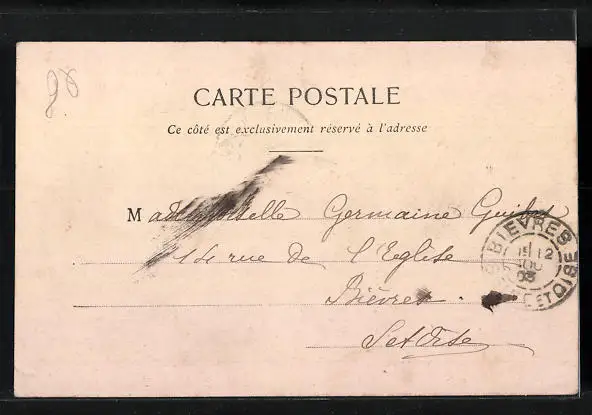 98
CARTE POSTALE
Ce côté est exclusivement réservé à l'adresse
Mademoiselle Germaine
14 rue de l'Eglise
Bièvres.
S et Oise
BIEVRES
12
03
ET OISE